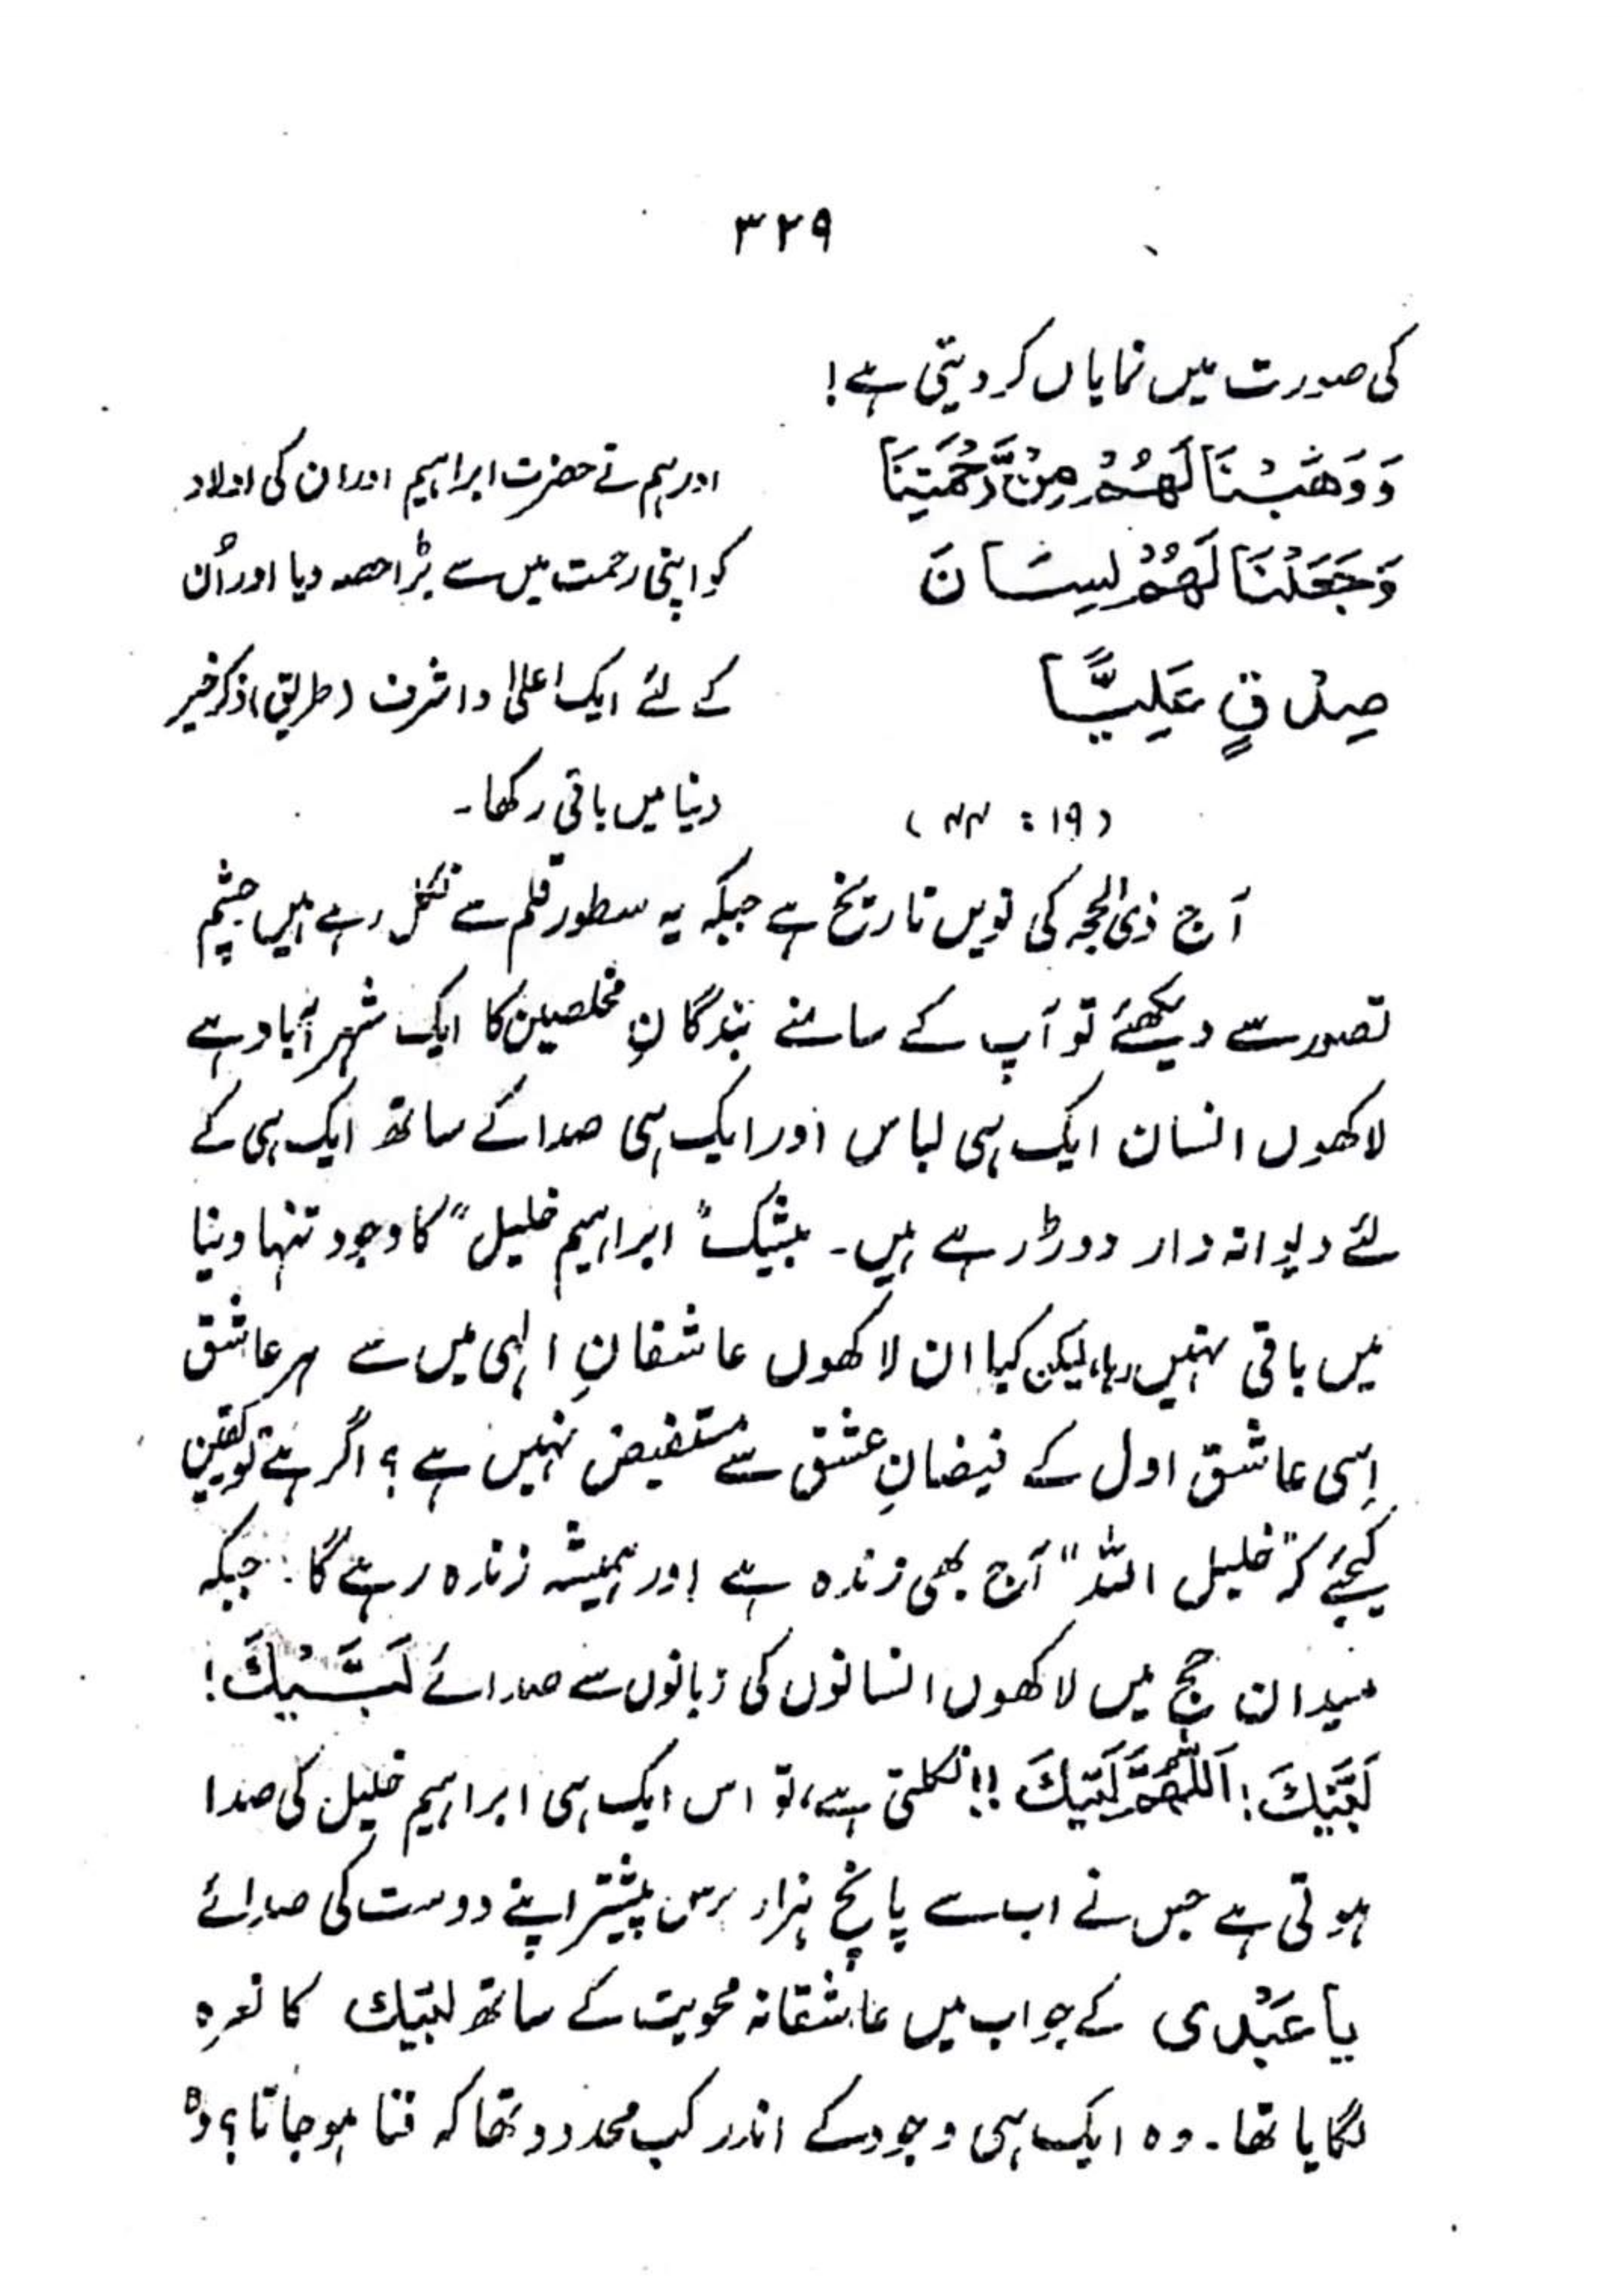 ۳۲۹
کی صورت میں نمایاں کر دیتی ہے!
وَوَهَبْنَا لَهُمْ مِنْ رَّحْمَتِنَا اور ہم نے حضرت ابراہیم اور ان کی اولاد
وَجَعَلْنَا لَهُمْ لِسَانَ کو اپنی رحمت میں سے بڑا حصہ دیا اور اُن
صِدْقٍ عَلِيًّا کے لئے ایک اعلیٰ و اشرف (طریق) ذکر خیر
(۱۹ : ) دنیا میں باقی رکھا۔
آج ذی الحجہ کی نویں تاریخ ہے جبکہ یہ سطور قلم سے نکل رہے ہیں چشم
تصور سے دیکھئے تو آپ کے سامنے بندگانِ مخلصین کا ایک شہر آباد ہے
لاکھوں انسان ایک ہی لباس اور ایک ہی صدا کے ساتھ ایک ہی کے
لئے دیوانہ وار دوڑ رہے ہیں۔ بیشک "ابراہیم خلیل" کا وجود تنہا دنیا
میں باقی نہیں رہا، لیکن کیا ان لاکھوں عاشقانِ الٰہی میں سے ہر عاشق
اِسی عاشق اول کے فیضانِ عشق سے مستفیض نہیں ہے؟ اگر ہے تو یقین
کیجئے کہ "خلیل اللہ" آج بھی زندہ ہے اور ہمیشہ زندہ رہے گا۔ جبکہ
میدان حج میں لاکھوں انسانوں کی زبانوں سے صدائے لَبَّيْكَ!
لَبَّيْكَ! اَللّٰهُمَّ لَبَّيْكَ!! نکلتی ہے، تو اس ایک ہی ابراہیم خلیل کی صدا
ہوتی ہے جس نے اب سے پانچ ہزار برس پیشتر اپنے دوست کی صدائے
یا عَبْدی کے جواب میں عاشقانہ محویت کے ساتھ لبّیک کا نعرہ
لگایا تھا۔ وہ ایک ہی وجود کے اندر کب محدود تھا کہ فنا ہو جاتا؟ وہ